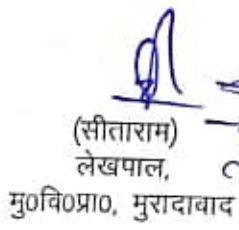 (सीताराम)
लेखपाल,
मु0वि0प्रा0, मुरादावाद